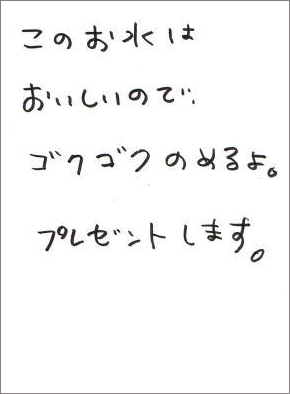 このお水は
おいしいので、
ゴクゴクのめるよ。
プレゼントします。